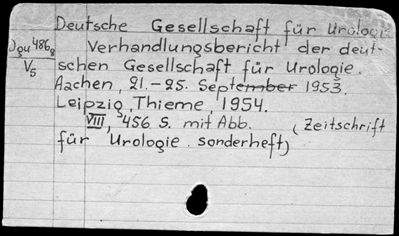 Deutsche Gesellschaft für Urologie
Verhandlungsbericht der deut-
schen Gesellschaft für Urologie.
Aachen, 21.-25. September 1953.
Leipzig, Thieme, 1954.
VIII, 456 S. mit Abb. (Zeitschrift
für Urologie sonderheft)
V5